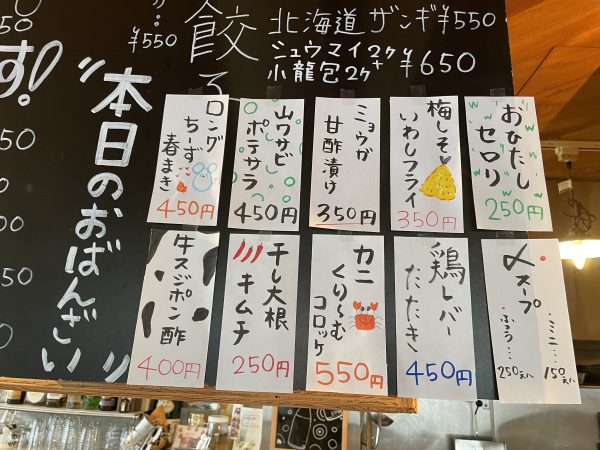 ¥550
餃子
北海道ザンギ¥550
シュウマイ2ケ+
小龍包2ケ
¥650
す!
"本日のおばんざい"
50
50
ロング
ちーず
春まき
450円
山ワサビ
ポテサラ
450円
ミョウガ
甘酢漬け
350円
梅しそ
いわしフライ
350円
おひたし
セロリ
250円
牛スジポン酢
400円
干し大根
キムチ
250円
カニ
くり~む
コロッケ
550円
鶏レバー
たたき
450円
〆スープ
・ミニ… 150えん
・ふつう… 250えん